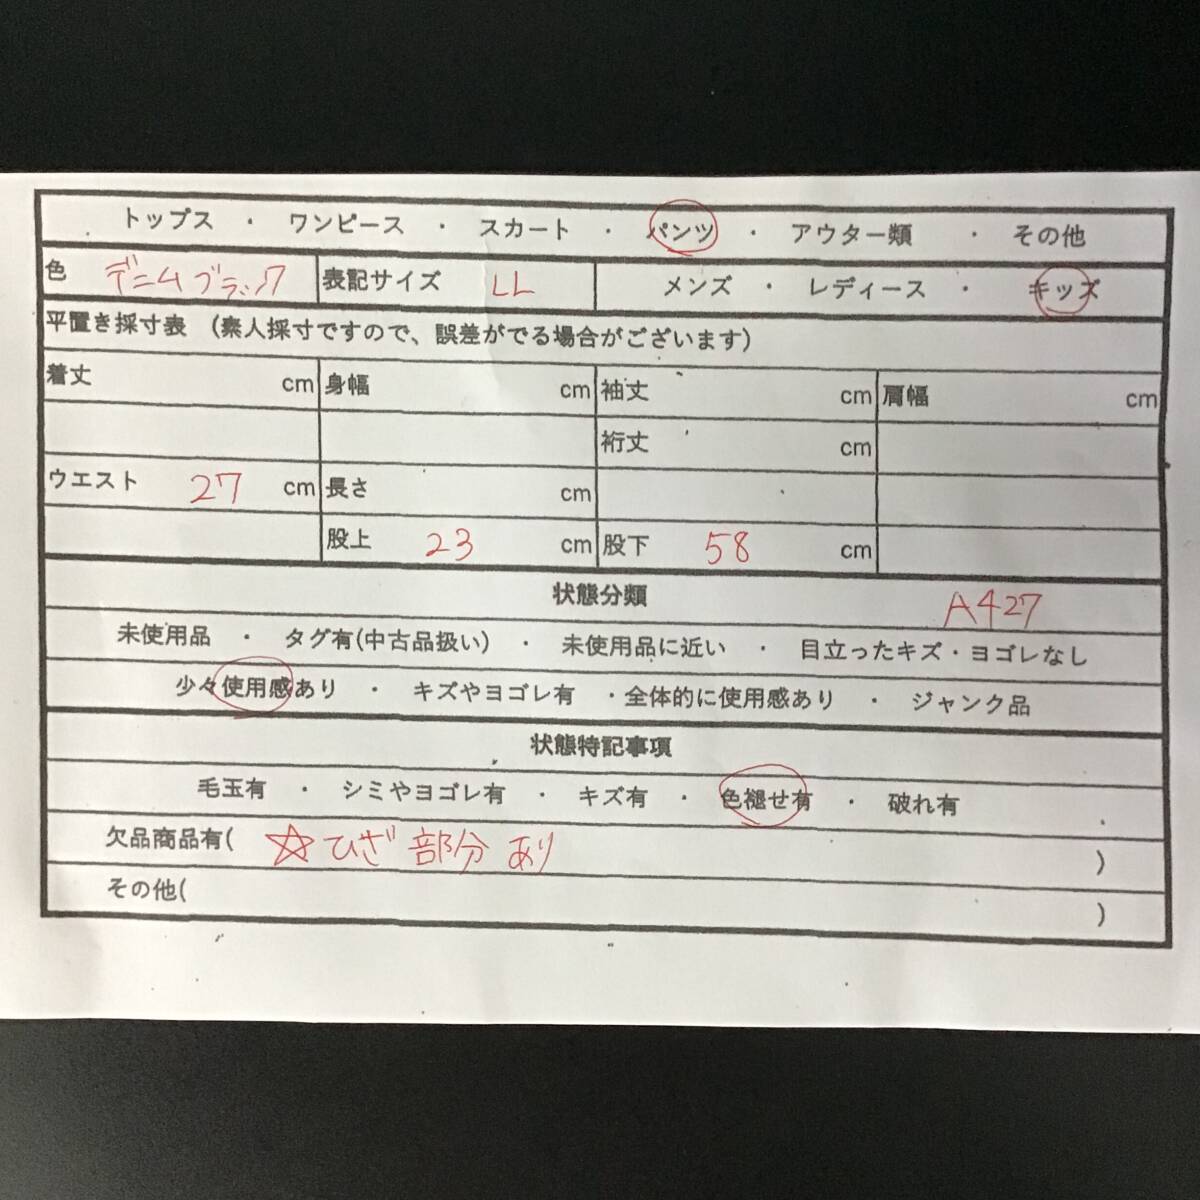 トップス ・ ワンピース ・ スカート ・ パンツ ・ アウター類 ・ その他
色 デニムブラック 表記サイズ LL メンズ ・ レディース ・ キッズ
平置き採寸表 (素人採寸ですので、誤差がでる場合がございます)
着丈 cm 身幅 cm 袖丈 cm 肩幅 cm
裄丈 cm
ウエスト 27 cm 長さ cm
股上 23 cm 股下 58 cm
状態分類 A427
未使用品 ・ タグ有(中古品扱い) ・ 未使用品に近い ・ 目立ったキズ・ヨゴレなし
少々使用感あり ・ キズやヨゴレ有 ・全体的に使用感あり ・ ジャンク品
状態特記事項
毛玉有 ・ シミやヨゴレ有 ・ キズ有 ・ 色褪せ有 ・ 破れ有
欠品商品有( ☆ひざ部分あり )
その他( )